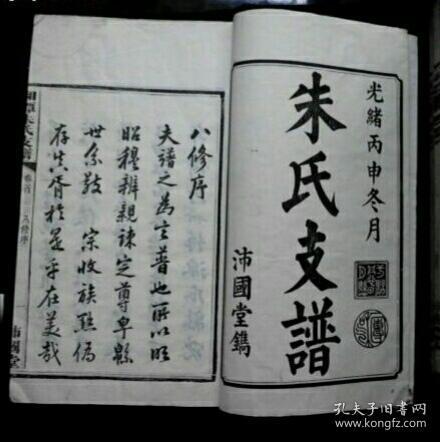 光緒丙申冬月
朱氏支譜
沛國堂鐫
八修序
夫譜之為言普也所以昭
昭穆辨親疎定尊卑縣
世系敬宗收族聯偽
存其胥於是乎在美哉
朱氏支譜
卷首
八修序
一
沛國堂
孔夫子旧書网
kongfz.com